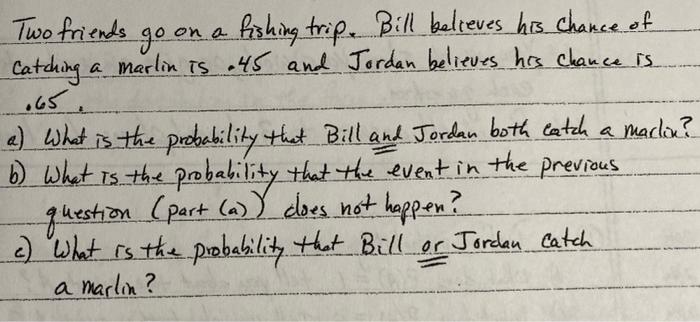 Two friends go on a fishing trip. Bill believes his chance of
catching a marlin is .45 and Jordan believes his chance is
.65.
a) What is the probability that Bill and Jordan both catch a marlin?
b) What is the probability that the event in the previous
question (part (a)) does not happen?
c) What is the probability that Bill or Jordan catch
a marlin?